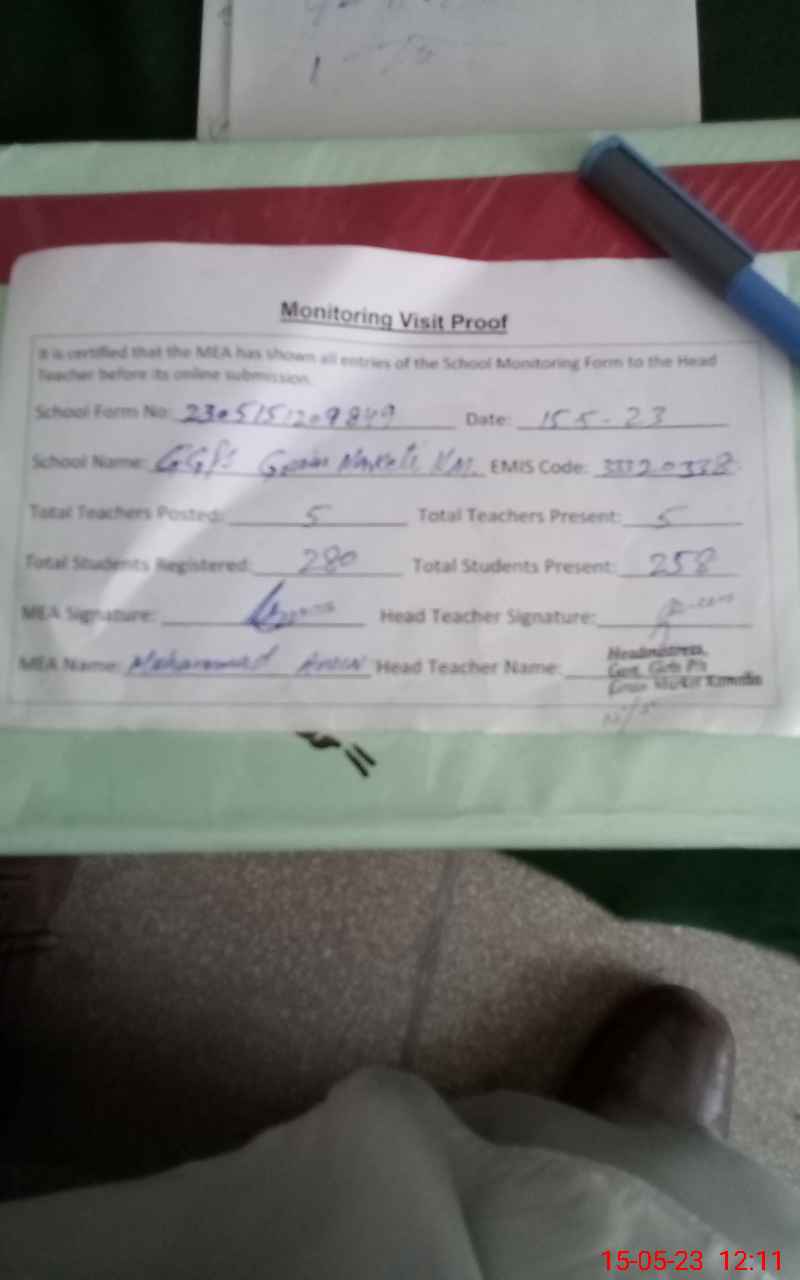 Monitoring Visit Proof
It is certified that the MEA has shown all entries of the School Monitoring Form to the Head
Teacher before its online submission.
School Form No: 2305151209849 Date: 15 5 - 23
School Name: GGPS Grain Market EMIS Code: 33320338
Total Teachers Posted: 5 Total Teachers Present: 5
Total Students Registered: 280 Total Students Present: 258
MEA Signature: Head Teacher Signature:
MEA Name: Muhammad Head Teacher Name: Headmistress,
Govt. Girls P/S
Grain Market Kamalia
15-05-23 12:11